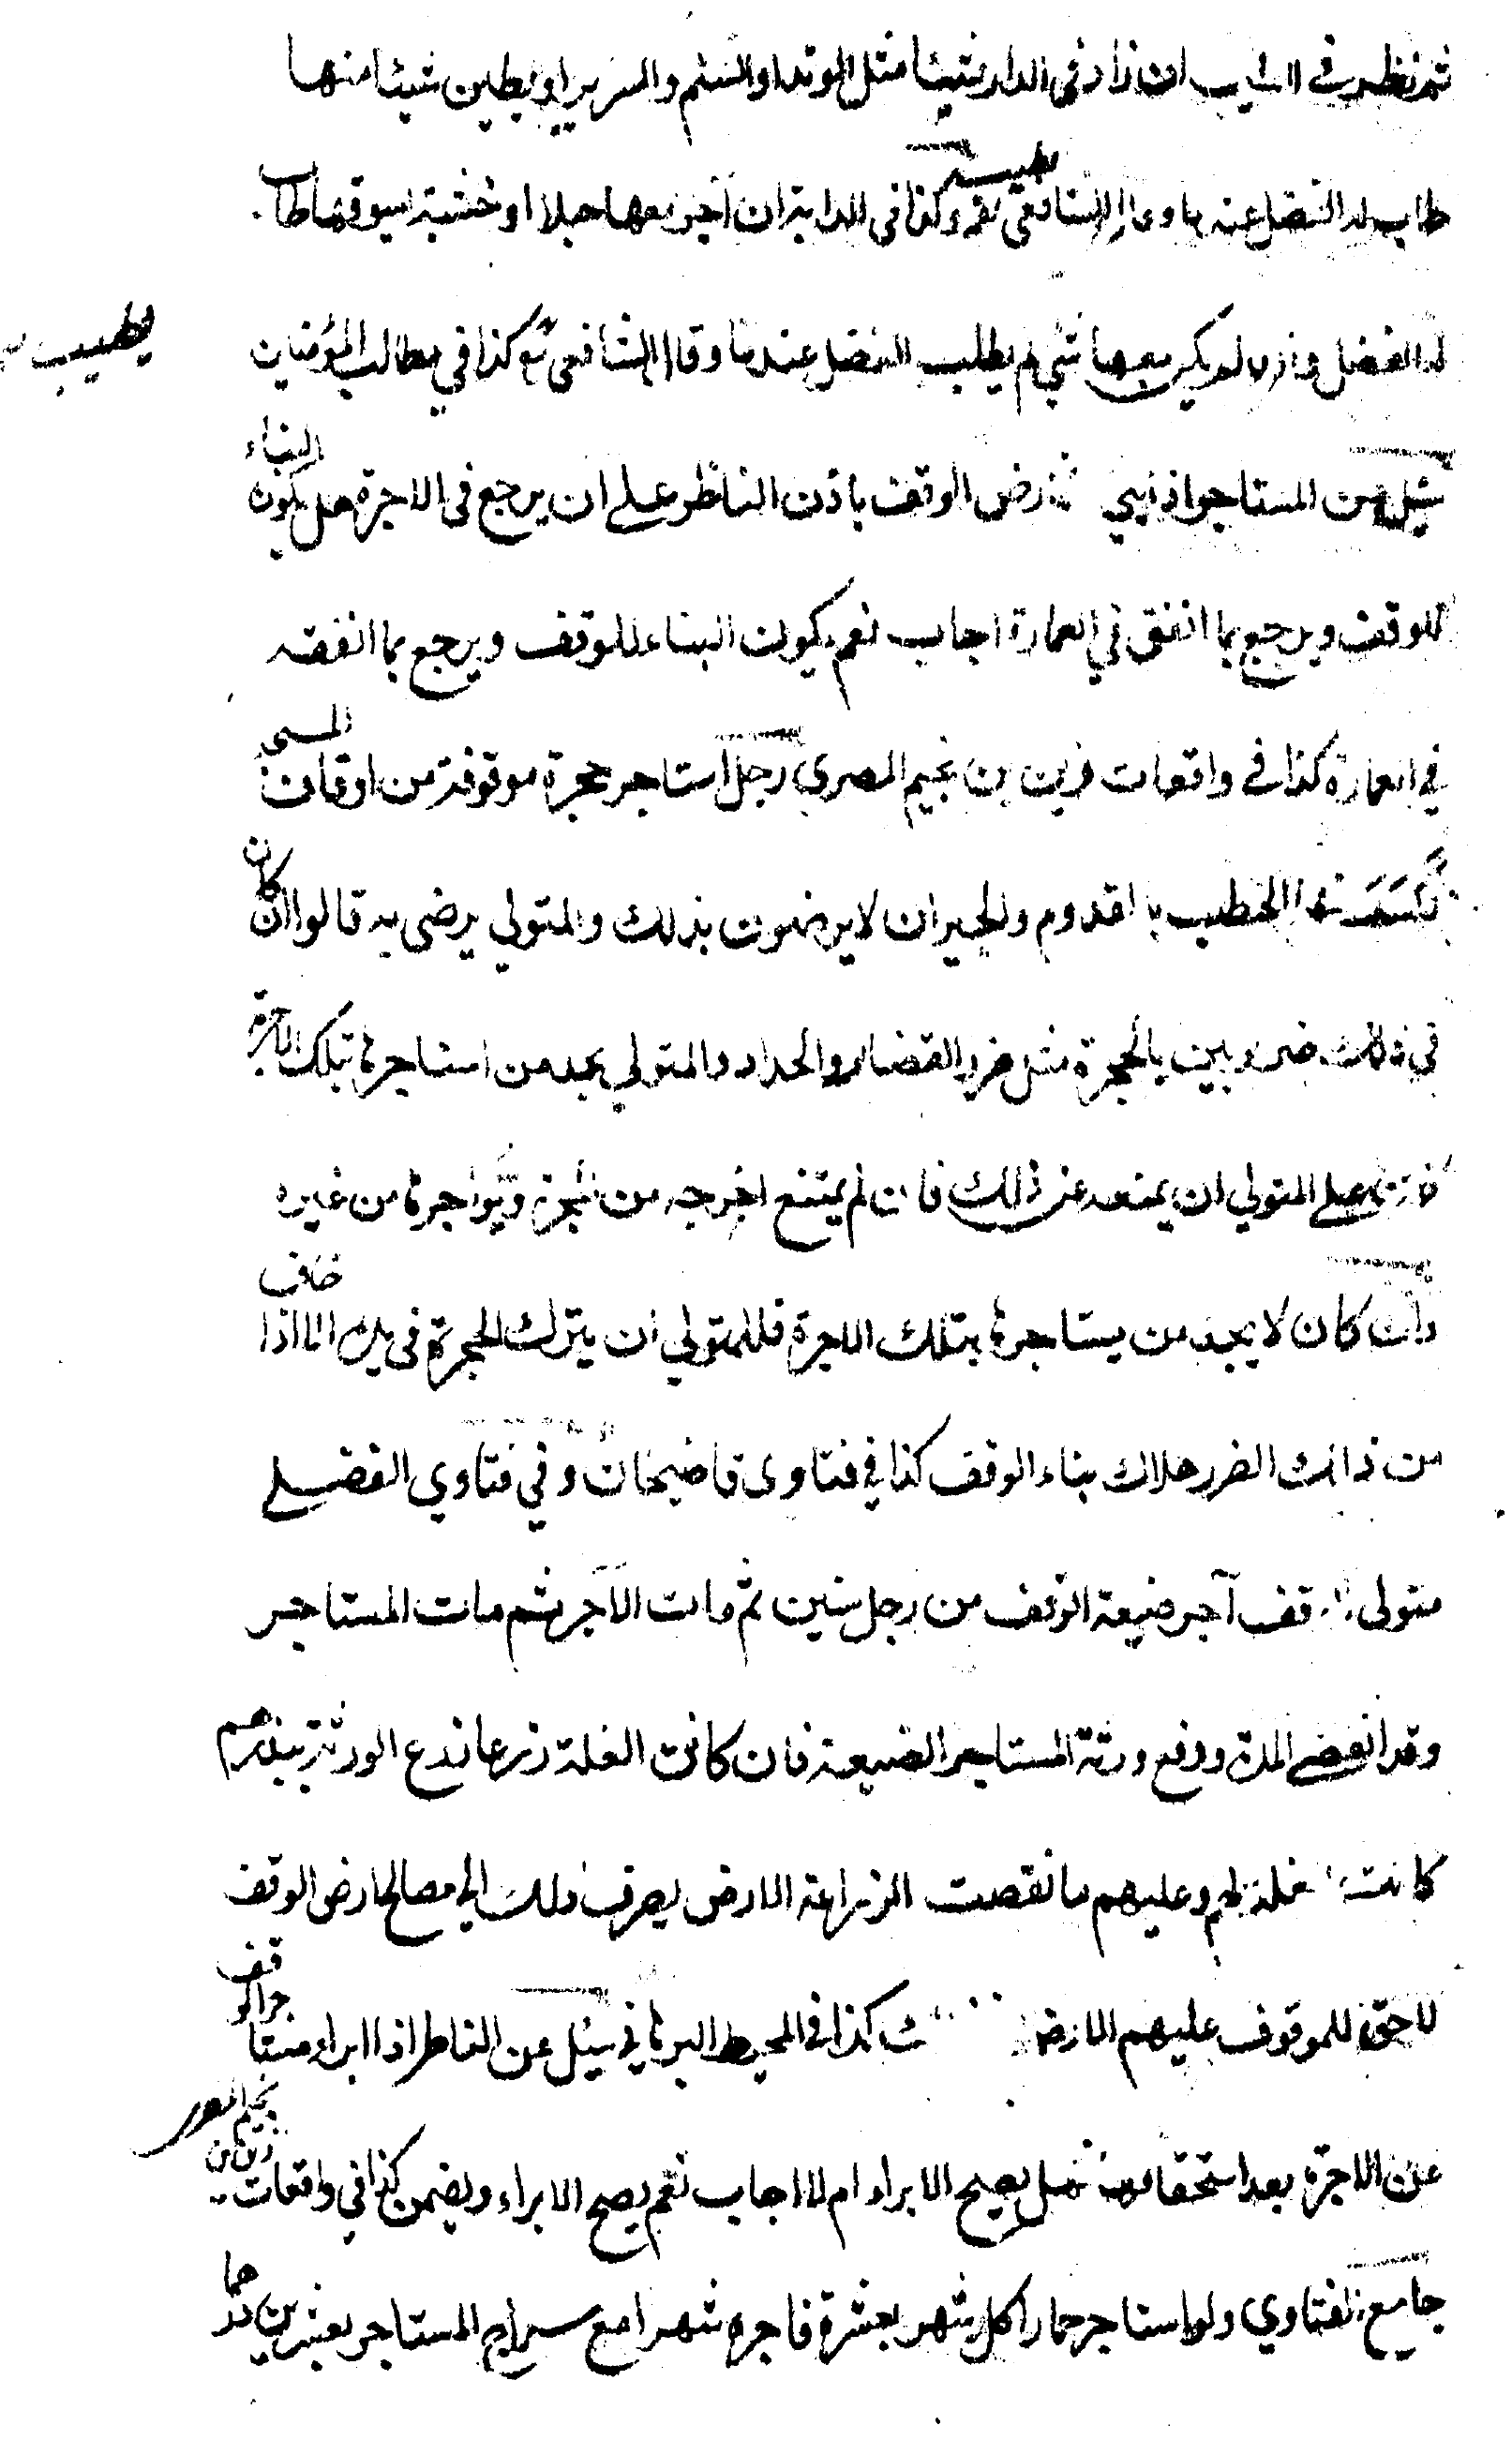 ثم نظر في ان زاد في الدار شيئا مثل الوتد او السلم والسرير او يطين شيئا منها
طاب له الفضل عندنا وقال الشافعي يطيب وكذا في الدابة ان آجر معها حبلا او خشبة يسوقها طاب
له الفضل وان لم يكن معها شيء لم يطلب الفضل عندنا وقال الشافعي كذا في مطالب المؤمنين
يطيب
سئل عن المستاجر اذا بنى في ارض الوقف باذن الناظر على ان يرجع في الاجرة هل يكون البناء
للوقف ويرجع بما انفق في العمارة اجاب نعم يكون البناء للوقف ويرجع بما انفقه
في العمارة كذا في واقعات زين بن نجيم المصري رجل استاجر حجرة موقوفة من اوقاف المسجد
يكسر فيها الحطب بالقدوم والجيران لا يرضون بذلك والمتولي يرضى به قالوا ان كان
في ذلك ضرر بين بالحجرة مثل ضرر القصار والحداد والمتولي يجد من استاجرها بتلك الاجرة
كان على المتولي ان يمنعه عن ذلك فان لم يمتنع اخرجه من الحجرة ويؤاجرها من غيره
وان كان لا يجد من يستاجرها بتلك الاجرة فللمتولي ان يترك الحجرة في يده الا اذا خاف
من ذلك الضرر هلاك بناء الوقف كذا في فتاوى قاضيخان وفي فتاوي الفضلي
متولي الوقف آجر ضيعة الوقف من رجل سنين ثم مات الآجر ثم مات المستاجر
وقد انقضى المدة ودفع ورثة المستاجر الضيعة فان كانت الغلة زرعا ندع الورثة ببذرهم
كانت الغلة لهم وعليهم ما نقصت الزراعة الارض يصرف ذلك الى مصالح ارض الوقف
لا حق للموقوف عليهم الارض كذا في المحيط البرهاني سئل عن الناظر اذا ابراء مستاجر الوقف
عن الاجرة بعد استحقاقها هل يصح الابراء ام لا اجاب نعم يصح الابراء ويضمن كذا في واقعات زين بن نجيم المصري
جامع الفتاوي ولو استاجر حمارا كل شهر بعشرة فاجره شهرا مع المستاجر بعشرين